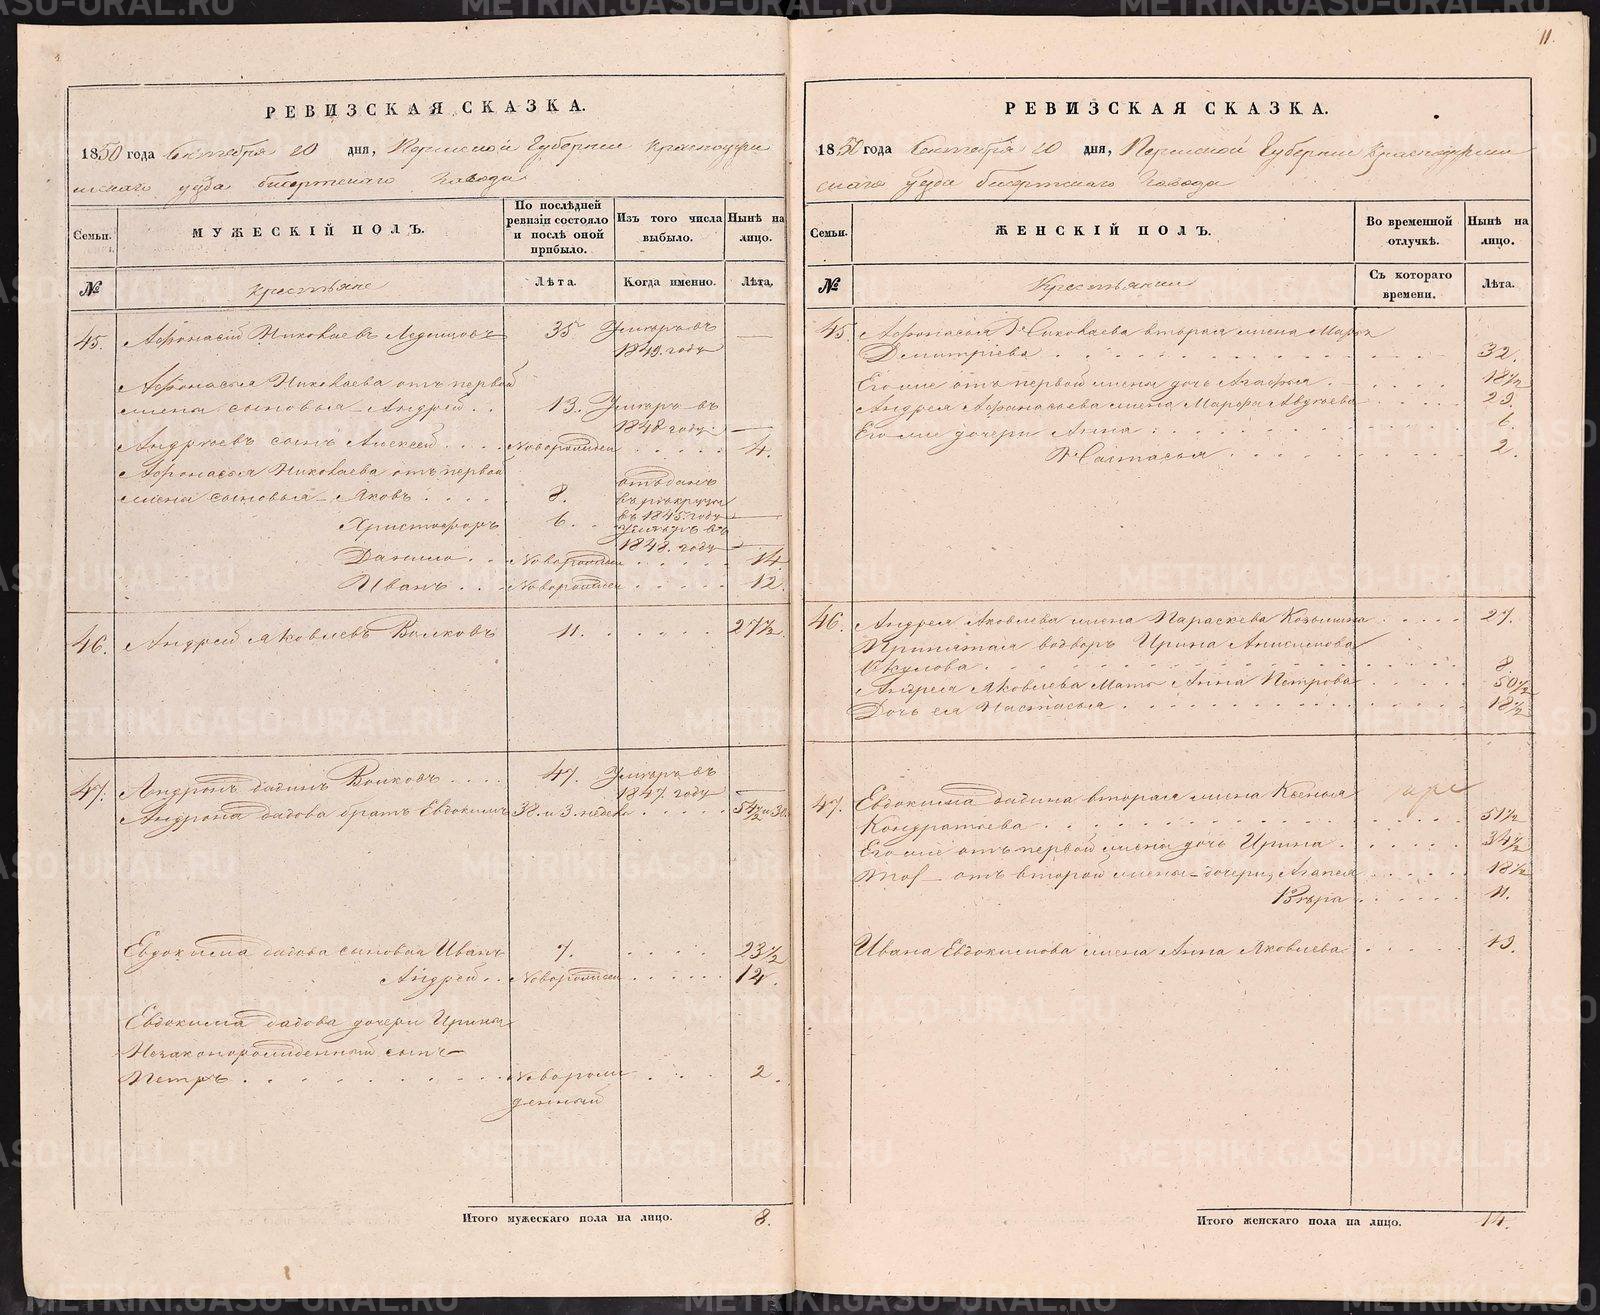 11.
РЕВИЗСКАЯ СКАЗКА.
1850 года Октября 20 дня, Пермской Губернии Красноуфи
мскаго уезда бисертскаго Завода
Семьи.
МУЖЕСКІЙ ПОЛЪ.
По послѣдней ревизіи состояло и послѣ оной прибыло.
Изъ того числа выбыло.
Нынѣ на лицо.
№
Крестьяне
Лѣта.
Когда именно.
Лѣта.
45. Афонасій Николаевъ 35 Умеръ въ —
1849. году
Афонасья Николаева отъ первой
жены сыновья Андрей . . 13. Умеръ въ
1848 году. —
Андреевъ сынъ Алексей . . . . Новорожден . . . . . 4.
Афонасья Николаева отъ первой
жены сыновья – Яковъ . . . . 8. отъданъ
въ рекруты
въ 1845. году —
Христофоръ 6. . Умеръ въ
1848. году —
Данило . . Новорожден . . . . . 14
Иванъ . . . Новорожден . . . . . 12.
46. Андрей Яковлевъ Волковъ 11. . . . . . 27½
47. Андронъ Волковъ . . . . 47. Умеръ въ
1847. году —
Андрона брат Евдокимъ 38. и 3. недел . . . . . 54½ и 30.
Евдокима сыновья Иванъ 7. . . . . 23½
Андрей . . Новорожден . . . . . 12.
Евдокима дочери Ирины
Незаконорожденный сынъ
Петръ . . . . . . . . . . . Новорож . . . . 2.
денный
Итого мужескаго пола на лицо. 8.
РЕВИЗСКАЯ СКАЗКА.
1850 года Октября 20 дня, Пермской Губерніи Красноуфим
скаго уезда бисертскаго Завода
Семьи.
ЖЕНСКІЙ ПОЛЪ.
Во временной отлучкѣ.
Нынѣ на лицо.
№
Крестьянки
Съ котораго времени.
Лѣта.
45. Афонасья Николаева вторая жена Марья
Дмитріева . . . . . . . . . . . . . . 32.
Его же отъ первой жены дочь Агафья . . . . . . 18½
Андрея Афанасьева жена Марфа . . . . . 23.
Его же дочери Анна . . . . . . . . . . . . . 6.
Настасья . . . . . . . . . . . . 2.
46. Андрея Яковлева жена Параскева Козьмина . . . . . 27.
Принятая водворъ Ирина Анисимова
. . . . . . . . . . . . . . . . 8.
Андрея Яковлева Мать Анна Петрова . . . . . 50½
Дочь ея Настасья . . . . . . . . . . . . . . 18½
47. Евдокима вторая жена Ксенья
Кондратьева . . . . . . . . . . . . . . . 51½
Его же отъ первой жены дочь Ирина . . . . . . 34½
отъ второй жены – дочери, Агапея . . . . . . 18½
Вѣра . . . . . . 11.
Ивана Евдокимова жена Анна Яковлева . . . . . . 19.
Итого женскаго пола на лицо. 14.
METRIKI.GASO-URAL.RU